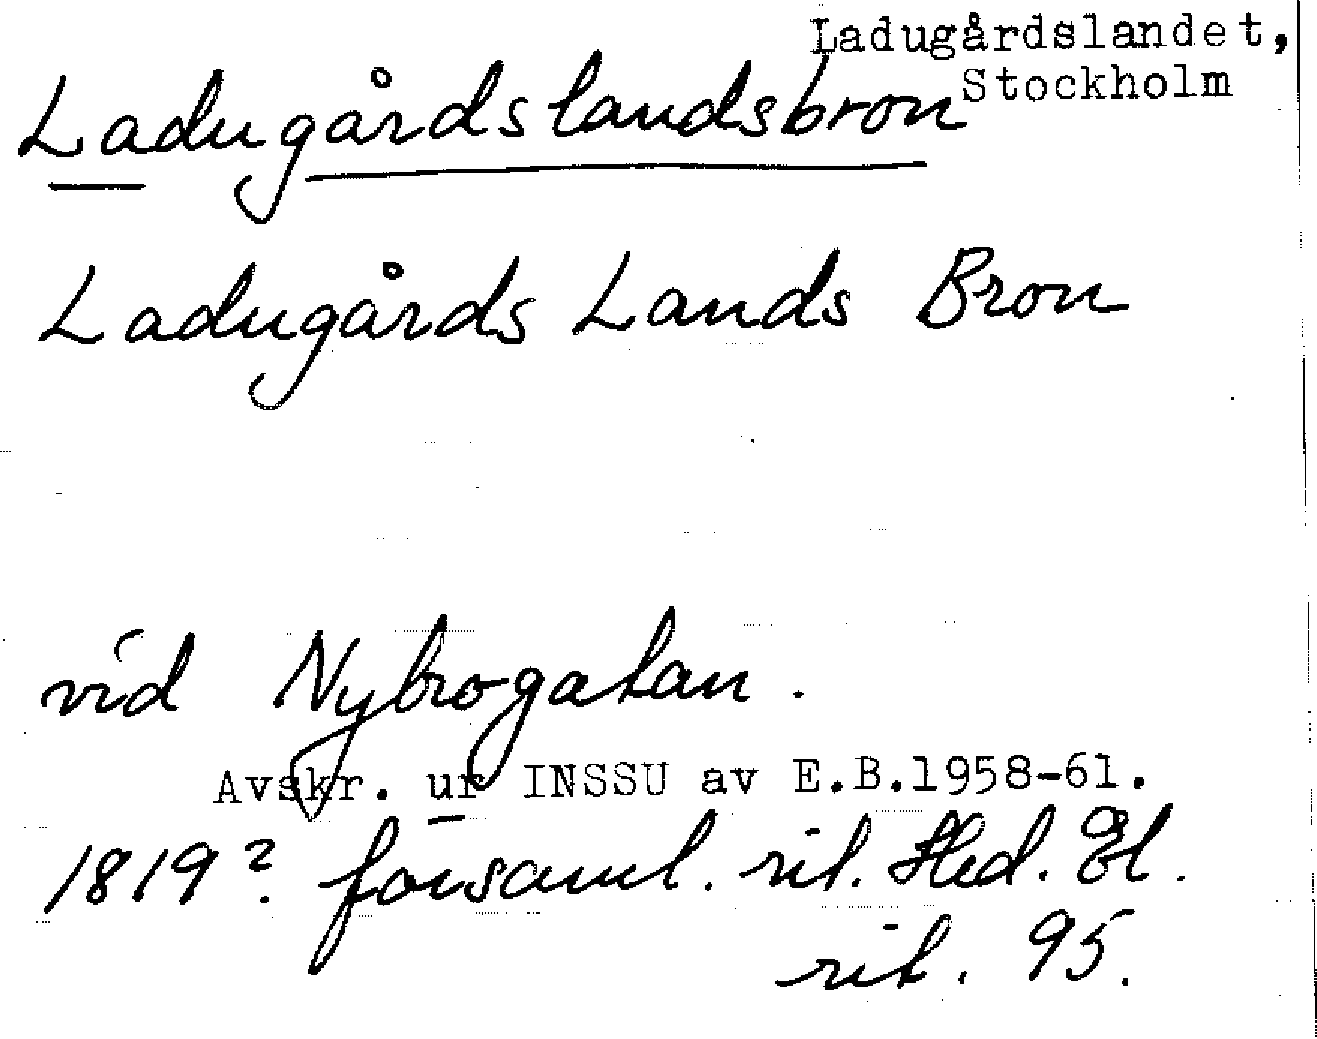 Ladugårdslandet,
Stockholm
Ladugårdslandsbron
Ladugårds Lands Bron
vid Nybrogatan.
Avskr. ur INSSU av E.B.1958-61.
1819? forsaml. rit. Hed. El.
rit. 95.